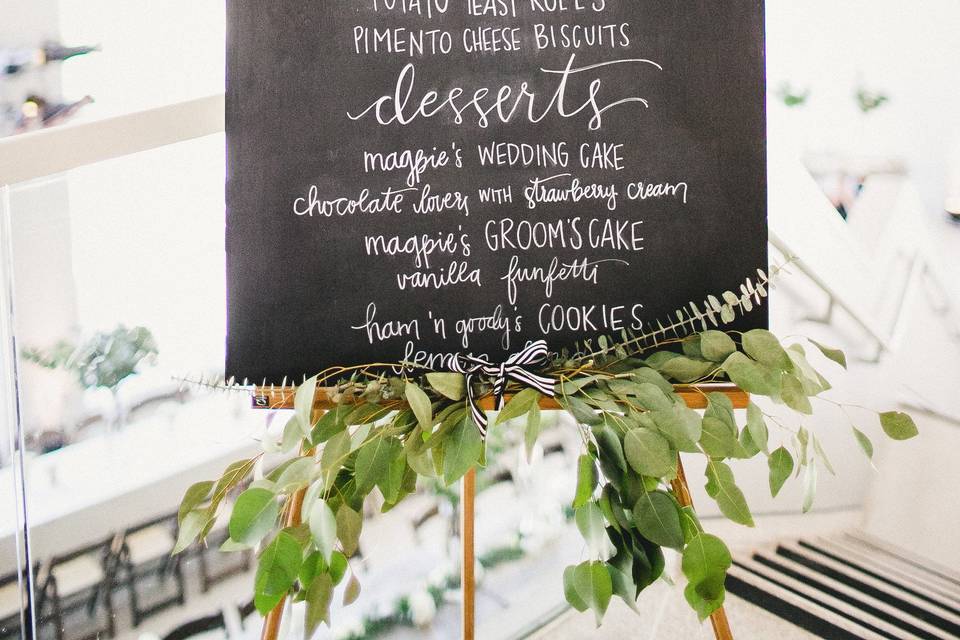 POTATO YEAST ROLLS
PIMENTO CHEESE BISCUITS
desserts
magpie's WEDDING CAKE
chocolate lovers WITH strawberry cream
magpie's GROOM'S CAKE
vanilla funfetti
ham 'n goody's COOKIES
lemon